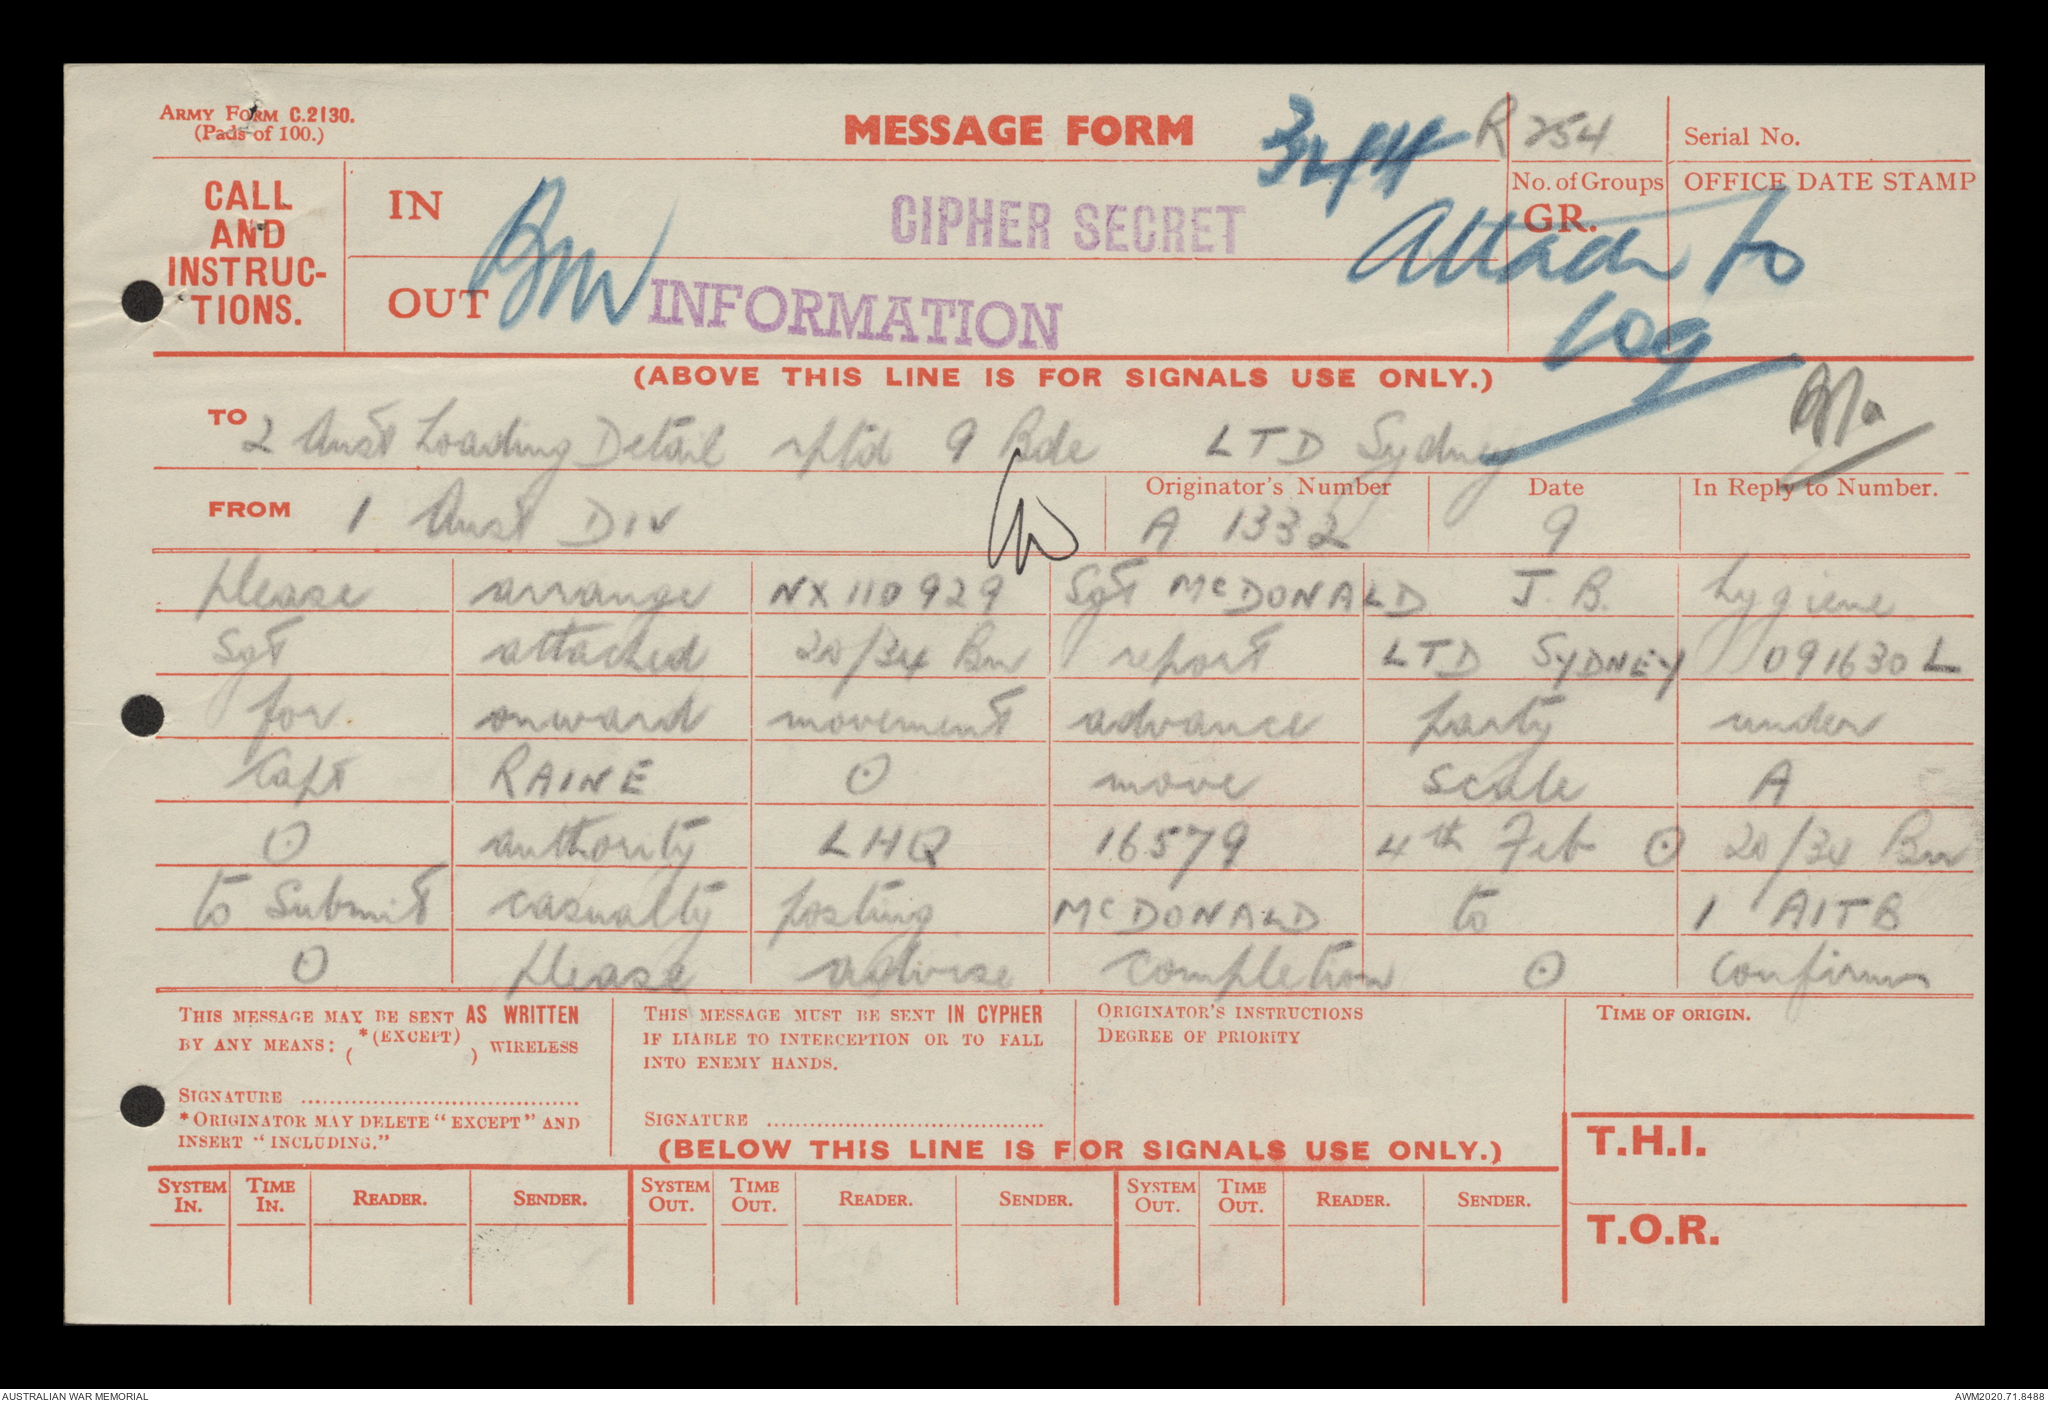 ARMY FORM C.2130.
(Pads of 100.)
MESSAGE FORM
R 254
Serial No.
CALL AND INSTRUC-TIONS.
IN
CIPHER SECRET
No. of Groups
GR.
OFFICE DATE STAMP
Attach to
log
OUT
BM
INFORMATION
(ABOVE THIS LINE IS FOR SIGNALS USE ONLY.)
TO 2 Aust Loading Detail rptd 9 Bde LTD Sydney
FROM 1 Aust Div
Originator's Number A 1332
Date 9
In Reply to Number.
please arrange NX 110929 Sgt McDONALD J. B. hygiene
Sgt attached 20/34 Bn report LTD SYDNEY 091630 L
for onward movement advance party under
Capt RAINE ⊙ move scale A
⊙ authority LHQ 16579 4th Feb ⊙ 20/34 Bn
to submit casualty posting McDONALD to 1 AITB
⊙ please advise completion ⊙ confirm
THIS MESSAGE MAY BE SENT AS WRITTEN
BY ANY MEANS: *(EXCEPT) ( ) WIRELESS
SIGNATURE
*ORIGINATOR MAY DELETE "EXCEPT" AND
INSERT "INCLUDING."
THIS MESSAGE MUST BE SENT IN CYPHER
IF LIABLE TO INTERCEPTION OR TO FALL
INTO ENEMY HANDS.
SIGNATURE
ORIGINATOR'S INSTRUCTIONS
DEGREE OF PRIORITY
TIME OF ORIGIN.
(BELOW THIS LINE IS FOR SIGNALS USE ONLY.)
T.H.I.
SYSTEM IN. TIME IN. READER. SENDER. SYSTEM OUT. TIME OUT. READER. SENDER. SYSTEM OUT. TIME OUT. READER. SENDER.
T.O.R.
AUSTRALIAN WAR MEMORIAL
AWM2020.71.8488